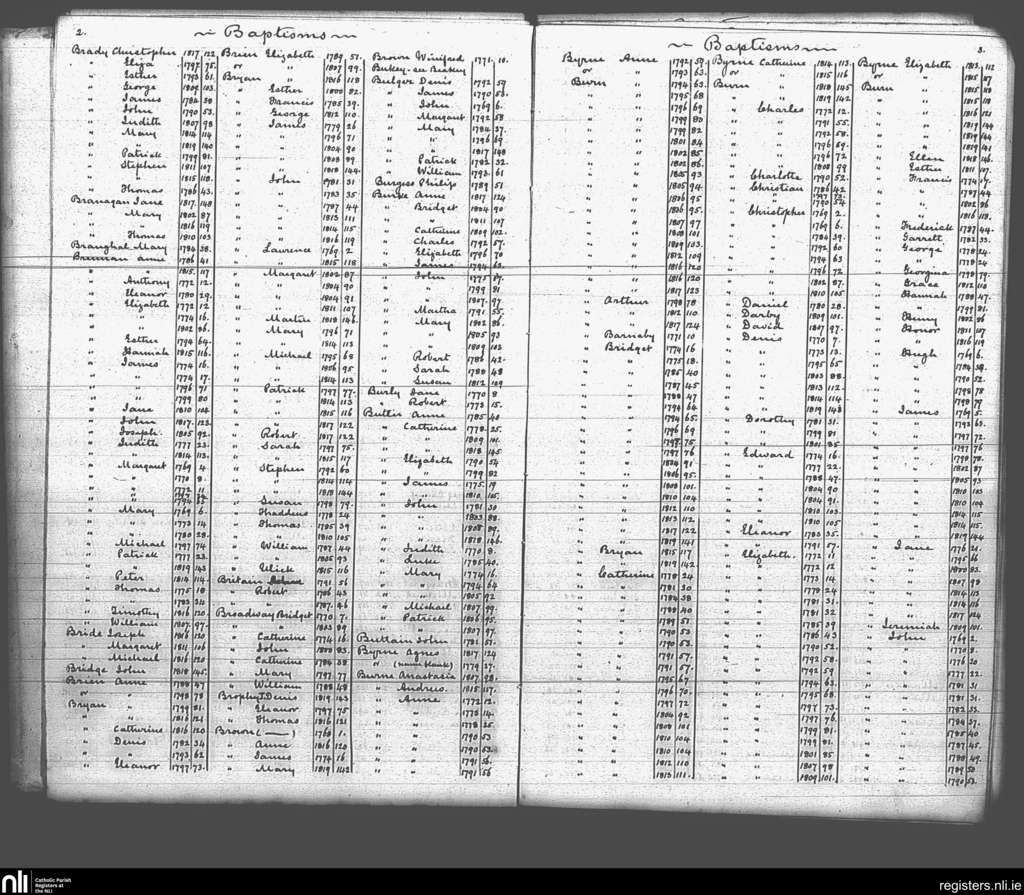 2.
~ Baptisms ~
Brady Christopher 1817 122
" Eliza 1797 75.
" Esther 1793 61.
" George 1809 103.
" James 1784 38
" John 1790 53.
" Judith 1807 98
" Mary 1814 114
" " 1819 140
" Patrick 1799 81.
" Stephen 1811 107
" " 1815 118.
" Thomas 1786 43.
Branagan Jane 1817 148
" Mary 1802 87
" " 1816 119
" Thomas 1810 103
Branghal Mary 1784 38.
Brennan Anne 1786 41
" " 1815 117
" Anthony 1772 12.
" Eleanor 1780 29.
" Elizabeth 1772 12
" " 1774 16.
" " 1802 86.
" Esther 1794 64.
" Hannah 1815 116.
" James 1774 16.
" " 1774 17.
" " 1796 71
" " 1799 80
" Jane 1810 104
" John 1817 123.
" Joseph 1805 92.
" Judith 1777 23.
" " 1814 113.
" Margaret 1769 4.
" " 1770 8.
" " 1772 11
" Mary 1769 6.
" " 1773 14
" " 1780 28.
" Michael 1797 74
" Patrick 1777 23.
" " 1819 143
" Peter 1814 114.
" Thomas 1775 18
" " 1783 34
" Timothy 1816 120.
" William 1807 97.
Bride Joseph 1816 120
" Margaret 1811 106
" Michael 1816 120
Bridge John 1818 145.
Brien Anne 1788 47
or " 1798 78
Bryan " 1799 81.
" " 1816 121
" Catherine 1816 120
" Denis 1782 34
" " 1793 62
" Eleanor 1797 73.
Brien Elizabeth 1789 51.
or " 1807 99.
Bryan " 1816 118
" Esther 1800 82.
" Francis 1785 39.
" George 1812 110.
" James 1779 26
" " 1796 71
" " 1804 90
" " 1808 89.
" " 1818 144.
" John 1781 31
" " 1783 35
" " 1787 44
" " 1813 111
" " 1814 115
" " 1816 119
" Laurence 1769 2
" " 1815 118
" Margaret 1802 87
" " 1804 90
" " 1804 91
" " 1811 107
" Martin 1818 146.
" Mary 1796 71
" " 1814 113
" Michael 1795 68
" " 1806 95
" " 1814 113
" Patrick 1797 77.
" " 1814 113
" " 1815 116
" " 1817 122
" Robert 1817 122
" Sarah 1797 75.
" " 1815 117
" Stephen 1792 60
" " 1814 114
" " 1818 144
" Susan 1798 79.
" Thaddeus 1778 24
" Thomas 1785 39
" " 1810 105
" William 1787 44
" " 1805 93
" Ulick 1815 116
Britain 1791 56
" Robert 1786 43
" " 1787 46
Broadway Bridget 1770 7.
" " 1803 89
" Catherine 1774 16.
" John 1800 83.
" Catherine 1784 38
" Mary 1797 77
" William 1788 48
Brophy Denis 1819 143
" Eleanor 1797 75
" Thomas 1816 121
Brown (——) 1768 1.
" Anne 1816 120
" James 1774 16
" Mary 1819 142
Brown Winifred 1771 10.
Bukey see Beakey
Bulger Denis 1792 59
" James 1790 53.
" John 1769 6.
" Margaret 1792 58
" Mary 1784 37.
" " 1796 69
" " 1817 148
" Patrick 1782 32.
" William 1793 61
Burgess Philip 1789 51
Burke Anne 1817 124
" Bridget 1804 90
" " 1811 107
" Catherine 1809 102.
" Charles 1792 57.
" Elizabeth 1796 70
" James 1794 63.
" John 1775 87.
" " 1799 81
" " 1807 97.
" Martha 1791 55.
" Mary 1802 86.
" " 1805 93
" " 1809 102
" Robert 1786 42.
" Sarah 1788 48
" Susan 1812 109
Burly Jane 1770 8
" Robert 1773 15.
Butler Anne 1785 40
" Catherine 1778 25.
" " 1809 101.
" " 1818 145
" Elizabeth 1790 54
" " 1799 82
" James 1775 19
" " 1810 105.
" John 1781 30
" " 1803 88
" " 1808 89.
" " 1818 146.
" Judith 1770 8.
" Luke 1785 40.
" Mary 1774 16.
" " 1794 64
" " 1805 92
" Michael 1807 99.
" Patrick 1806 95.
" " 1807 97.
Buttlain John 1781 57.
Byrne Agnes 1817 124
or (name blank) 1779 27.
Burne Anastasia 1807 98.
" Andrew 1815 117.
" Anne 1772 12.
" " 1773 14.
" " 1778 25
" " 1790 53
" " 1790 53.
" " 1791 56.
" " 1791 56
3.
~ Baptisms ~
Byrne Anne 1792 59.
or " 1793 63.
Burn " 1794 63.
" " 1795 68
" " 1796 69
" " 1799 80
" " 1799 82
" " 1801 84
" " 1802 85
" " 1802 86.
" " 1805 93
" " 1805 94.
" " 1806 95
" " 1806 95.
" " 1807 97
" " 1808 101
" " 1809 103.
" " 1812 109
" " 1816 120
" " 1816 120
" " 1817 123
" Arthur 1798 78
" " 1812 110.
" " 1817 124
" Barnaby 1771 10
" Bridget 1774 16
" " 1775 18.
" " 1785 40
" " 1787 45
" " 1788 47
" " 1794 64
" " 1794 65.
" " 1796 69
" " 1797 75.
" " 1797 76
" " 1804 91
" " 1806 95.
" " 1808 101.
" " 1810 104
" " 1812 110
" " 1813 112
" " 1817 122
" " 1819 141
" Bryan 1815 117
" " 1819 142
" Catherine 1778 24
" " 1781 30
" " 1784 38
" " 1788 40
" " 1789 51
" " 1790 53
" " 1790 53.
" " 1791 57
" " 1791 57.
" " 1795 67
" " 1796 70.
" " 1797 72
" " 1804 92
" " 1808 101
" " 1810 104
" " 1810 104
" " 1812 110
" " 1813 111.
Byrne Catherine 1814 113.
or " 1815 116
Burn " 1818 145
" " 1819 142
" Charles 1772 12.
" " 1791 55.
" " 1792 58.
" " 1796 69.
" " 1796 72
" " 1808 99
" Charlotte 1790 52.
" Christian 1786 42
" " 1790 54
" Christopher 1769 2.
" " 1769 6.
" " 1784 39.
" " 1792 60
" " 1794 63
" " 1796 72
" " 1802 87.
" " 1810 105
" Daniel 1780 28.
" Darby 1809 101.
" David 1807 97.
" Denis 1770 7.
" " 1773 13.
" " 1795 65
" " 1803 88.
" " 1813 112
" " 1814 114
" " 1819 143
" Dorothy 1781 31.
" " 1799 81
" " 1801 85
" Edward 1774 16.
" " 1777 22.
" " 1788 47.
" " 1804 90
" " 1804 91.
" " 1810 103.
" " 1810 105
" Eleanor 1783 35.
" " 1791 57.
" Elizabeth 1772 11
" " 1772 12
" " 1773 14
" " 1778 24
" " 1781 31.
" " 1781 32
" " 1785 39
" " 1786 43
" " 1790 52.
" " 1792 58
" " 1792 59
" " 1794 63.
" " 1795 68.
" " 1797 73.
" " 1797 76.
" " 1799 81.
" " 1799 81.
" " 1801 85
" " 1807 98
" " 1809 101.
Byrne Elizabeth 1813 112
or " 1815 117
Burn " 1815 118
" " 1815 118
" " 1816 121
" " 1819 144
" " 1819 144
" " 1819 141
" Ellen 1818 146.
" Esther 1811 107.
" Francis 1774 17.
" " 1787 44
" " 1802 86
" " 1816 118.
" Frederick 1787 44.
" Garrett 1782 33.
" George 1778 24.
" " 1778 24
" Georgina 1798 79.
" Grace 1812 110
" Hannah 1788 47.
" " 1799 81.
" Henry 1802 86
" Honor 1811 107
" " 1816 119
" Hugh 1769 6.
" " 1784 38.
" " 1790 52.
" " 1798 78
" " 1798 79
" James 1769 5.
" " 1793 63.
" " 1797 72.
" " 1797 76
" " 1790 78.
" " 1802 87
" " 1805 93
" " 1810 103
" " 1810 104
" " 1814 115
" " 1814 115.
" " 1819 144
" Jane 1776 21.
" " 1795 66
" " 1800 83.
" " 1807 99
" " 1814 113
" " 1814 116
" " 1817 124
" Jeremiah 1809 101.
" John 1769 2.
" " 1770 8.
" " 1776 20
" " 1777 22.
" " 1781 31
" " 1781 31.
" " 1782 33.
" " 1784 37.
" " 1785 40
" " 1787 45.
" " 1788 49.
" " 1789 50
" " 1790 53.
nli
Catholic Parish
Registers at
the NLI
registers.nli.ie